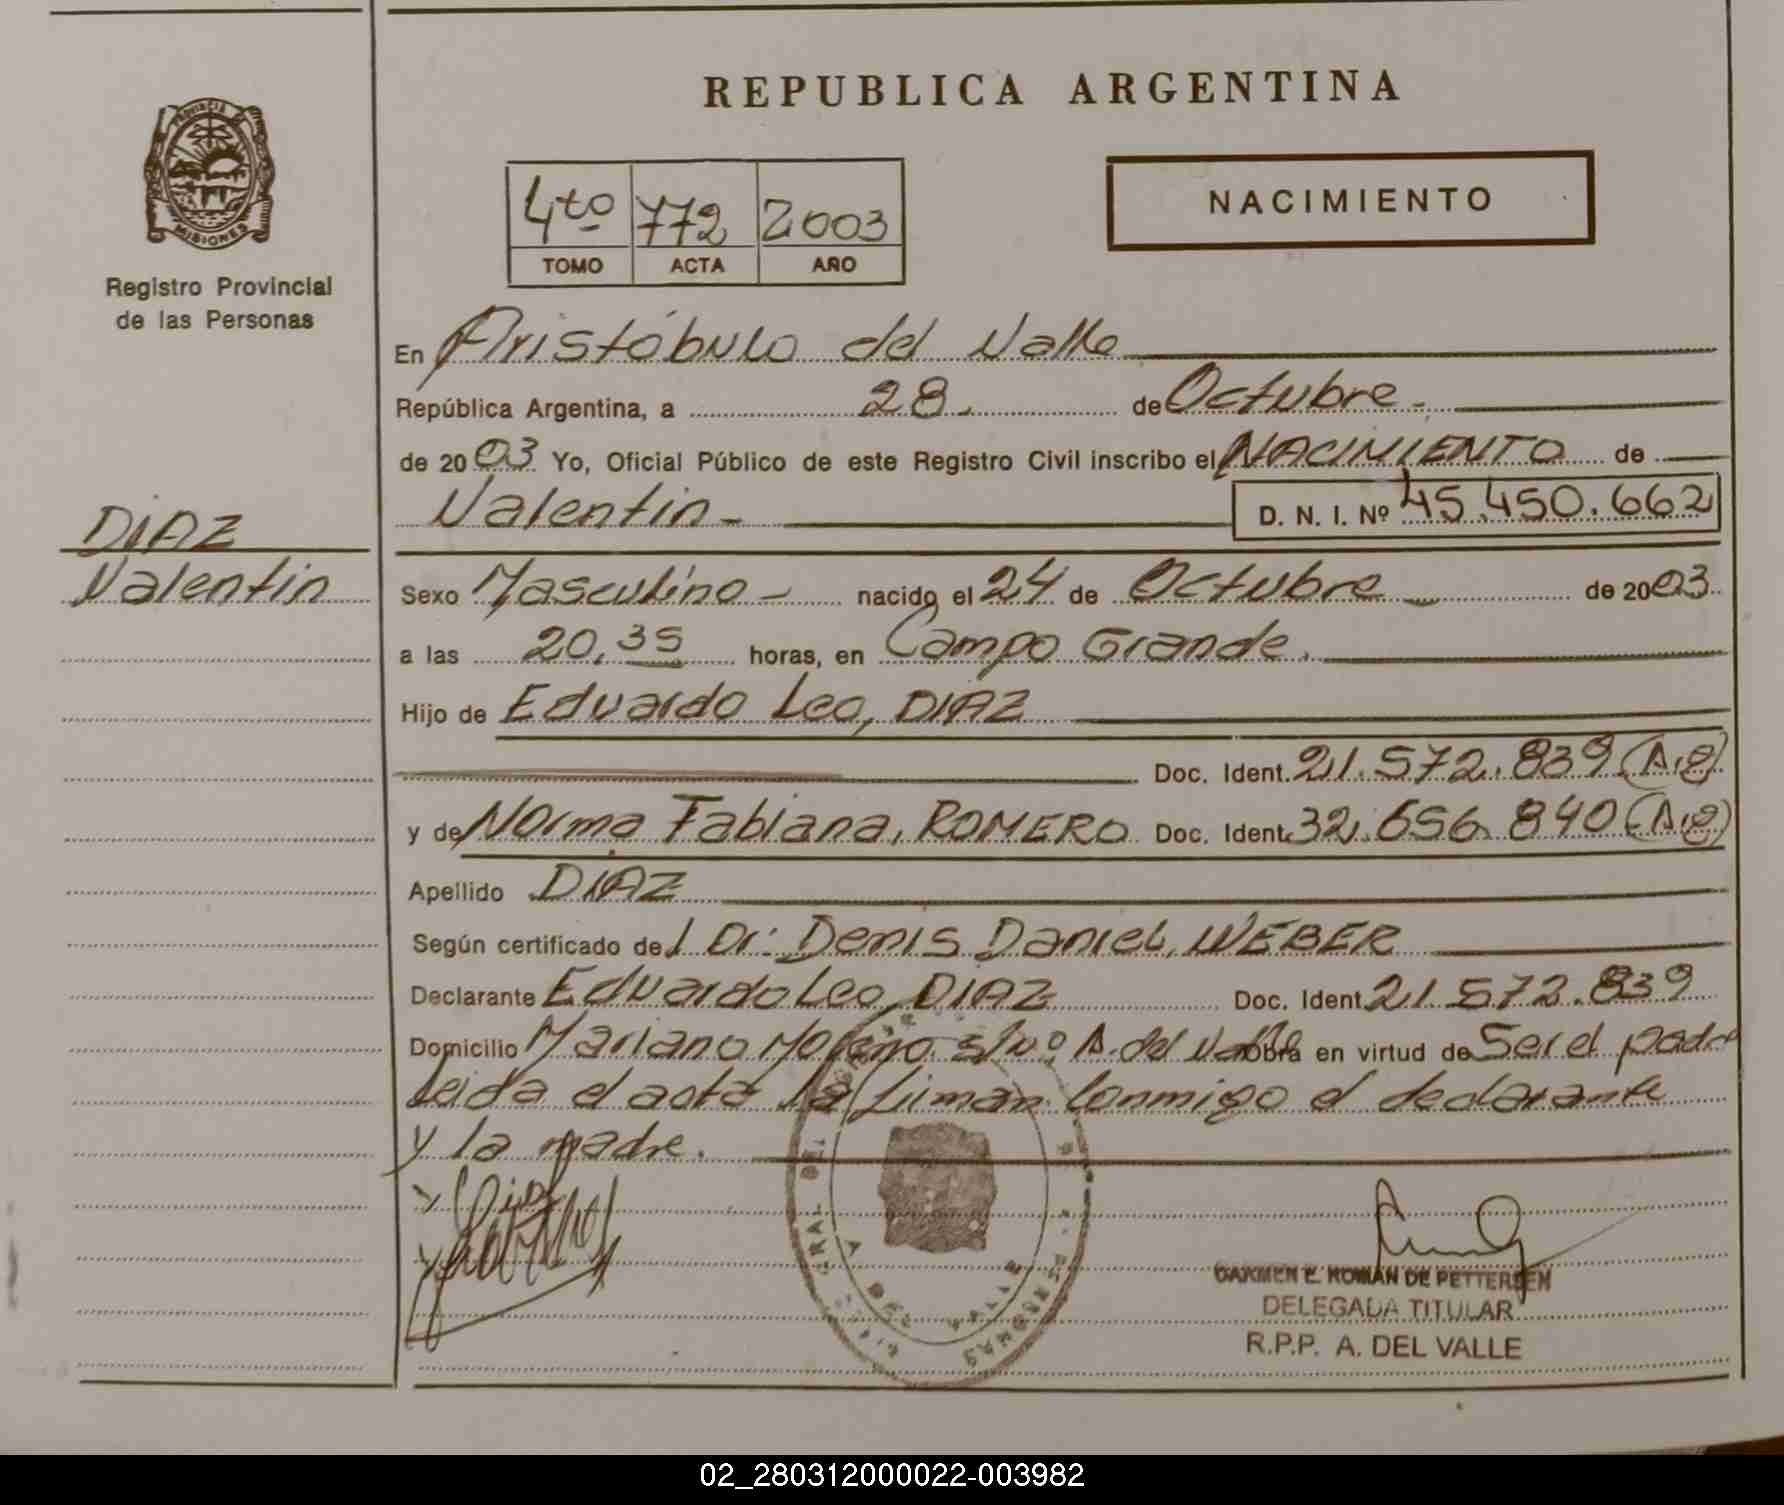 REPUBLICA ARGENTINA
PROVINCIA DE
MISIONES
Registro Provincial
de las Personas
4to 772 2003
TOMO ACTA AÑO
NACIMIENTO
En Aristóbulo del Valle
República Argentina, a 28. de Octubre.
de 2003 Yo, Oficial Público de este Registro Civil inscribo el NACIMIENTO de
Valentin D. N. I. Nº 45.450.662
DIAZ
Valentin
Sexo Masculino nacido el 24 de Octubre de 2003
a las 20,35 horas, en Campo Grande.
Hijo de Eduardo Leo, DIAZ
Doc. Ident. 21.572.839 (A.g)
y de Norma Fabiana, ROMERO Doc. Ident. 32.656.840 (A.g)
Apellido DIAZ
Según certificado del Dr: Denis Daniel, WEBER
Declarante Eduardo Leo, DIAZ Doc. Ident. 21.572.839
Domicilio Mariano Moreno s/nº A. del Valle obra en virtud de Ser el padre
Leida el acta la firman Conmigo el declarante
y la madre.
A DEL VALLE
CARMEN E. ROMAN DE PETTERSEN
DELEGADA TITULAR
R.P.P. A. DEL VALLE
02_280312000022-003982